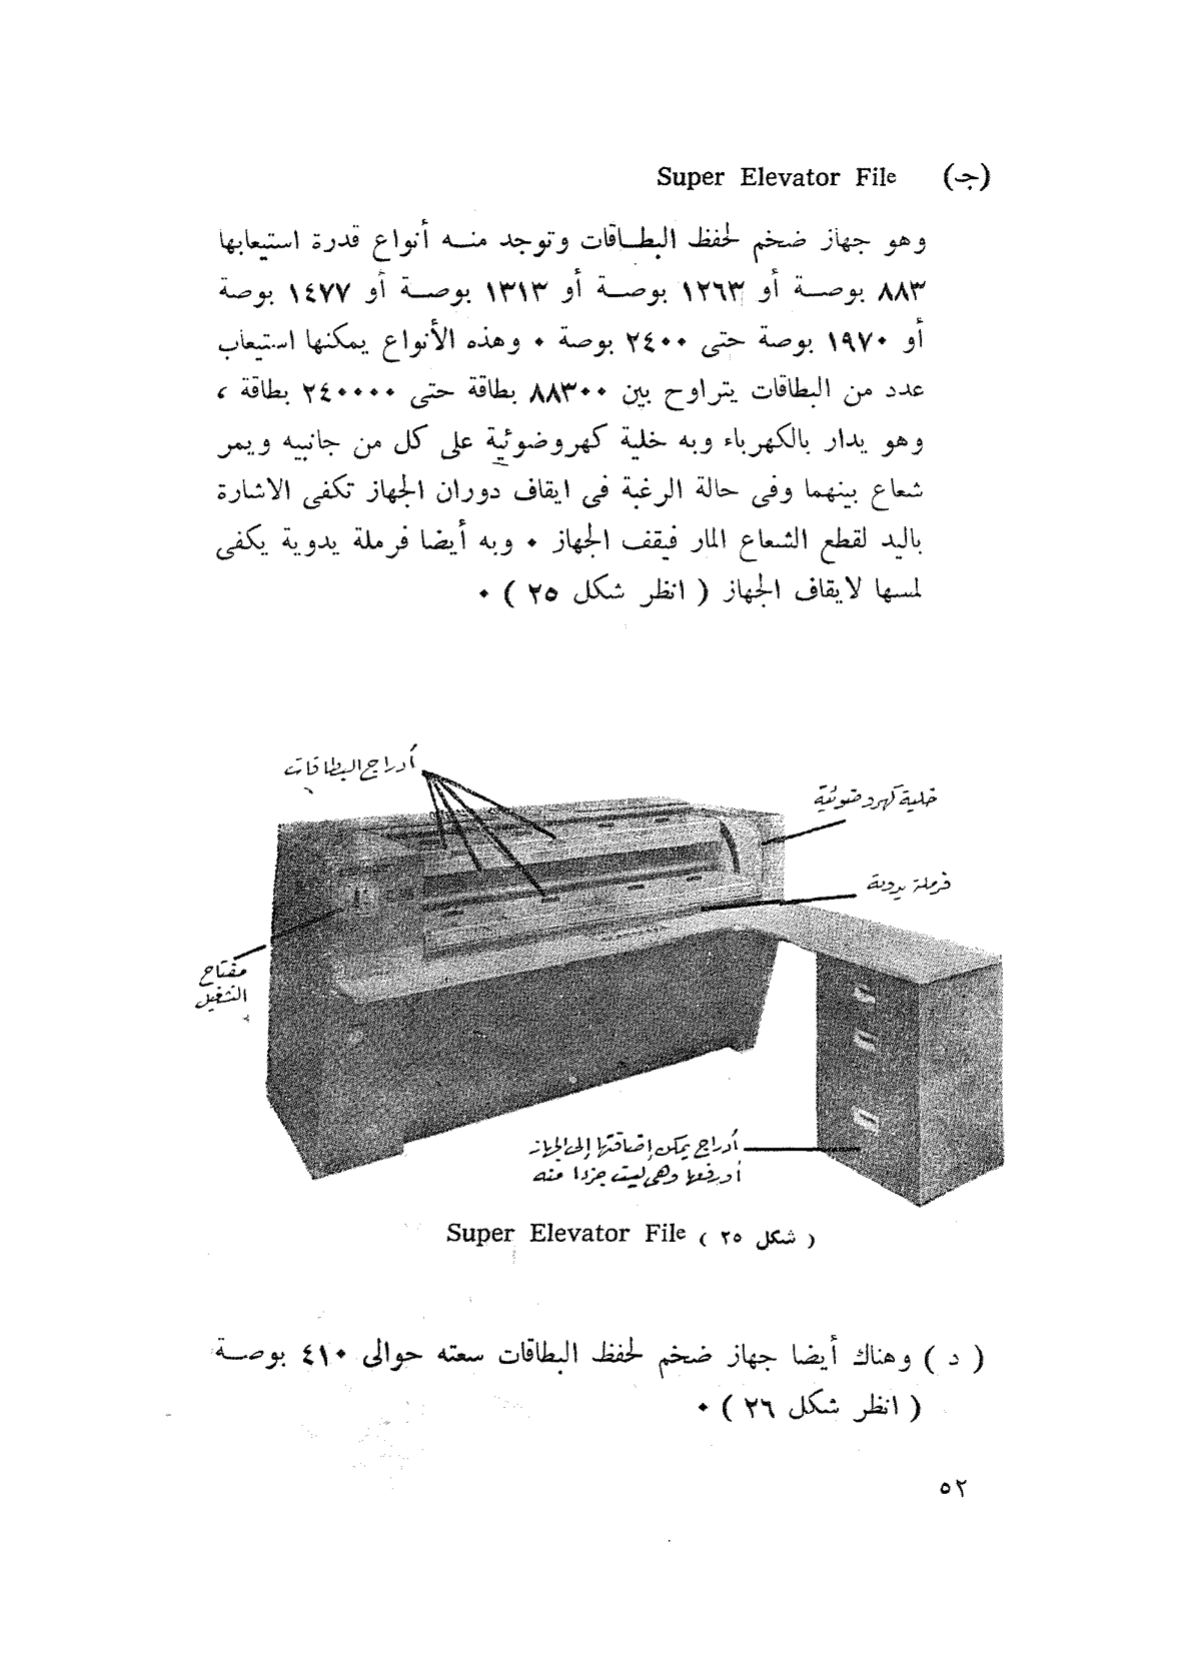 (جـ) Super Elevator File
وهو جهاز ضخم لحفظ البطـاقات وتوجد منـه أنواع قدرة استيعابها
٨٨٣ بوصـة أو ١٢٦٣ بوصـة أو ١٣١٣ بوصـة أو ١٤٧٧ بوصة
أو ١٩٧٠ بوصة حتى ٢٤٠٠ بوصة ٠ وهذه الأنواع يمكنها استيعاب
عدد من البطاقات يتراوح بين ٨٨٣٠٠ بطاقة حتى ٢٤٠٠٠٠ بطاقة ،
وهو يدار بالكهرباء وبه خلية كهروضوئية على كل من جانبيه ويمر
شعاع بينهما وفى حالة الرغبة فى ايقاف دوران الجهاز تكفى الاشارة
باليد لقطع الشعاع المار فيقف الجهاز ٠ وبه أيضا فرملة يدوية يكفى
لمسها لايقاف الجهاز ( انظر شكل ٢٥ ) ٠
أدراج البطاقات
خلية كهروضوئية
فرملة يدوية
مفتاح
التشغيل
أدراج يمكن إضافتها إلى الجهاز
أو رفعها وهى ليست جزءا منه
( شكل ٢٥ ) Super Elevator File
( د ) وهناك أيضا جهاز ضخم لحفظ البطاقات سعته حوالى ٤١٠ بوصـة
( انظر شكل ٢٦ ) ٠
٥٢